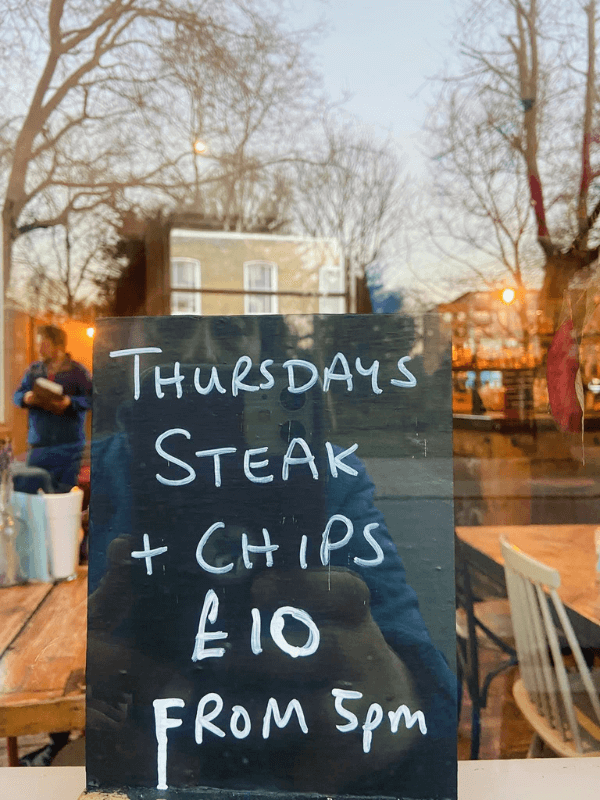 THURSDAYS
STEAK
+ CHIPS
£10
FROM 5pm